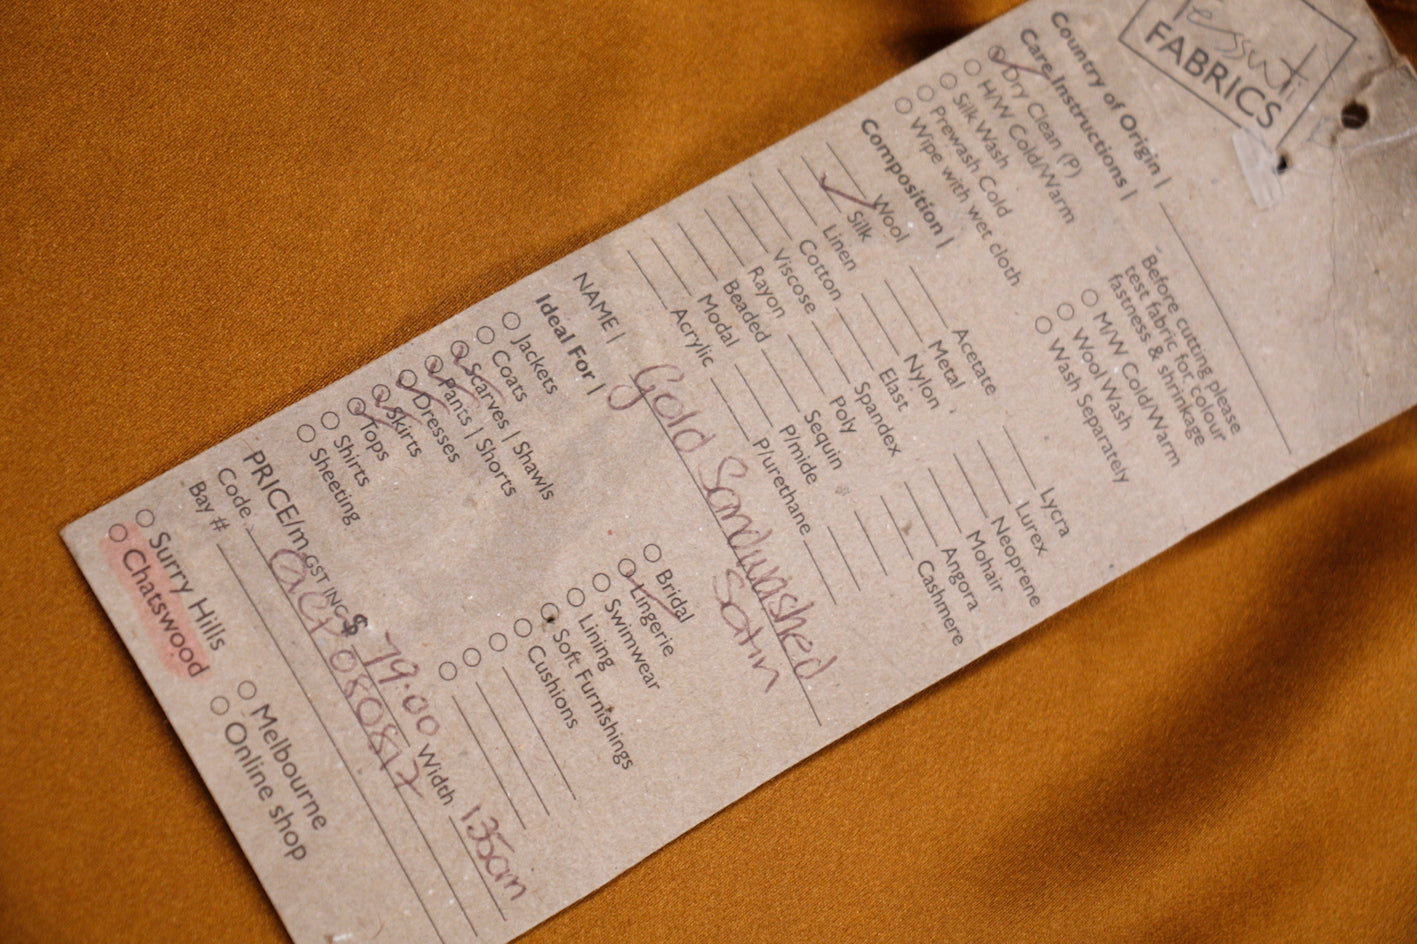 Tessuti
FABRICS
Country of Origin |
Care Instructions |
Dry Clean (P)
H/W Cold/Warm
Silk Wash
Prewash Cold
Wipe with wet cloth
Before cutting please
test fabric for colour
fastness & shrinkage
M/W Cold/Warm
Wool Wash
Wash Separately
Composition |
Wool Acetate Lycra
Silk Metal Lurex
Linen Nylon Neoprene
Cotton Elast Mohair
Viscose Spandex Angora
Rayon Poly Cashmere
Beaded Sequin
Modal P/mide
Acrylic P/urethane
NAME | Gold Sandwashed
Satin
Ideal For |
Jackets Bridal
Coats Lingerie
Scarves | Shawls Swimwear
Pants | Shorts Lining
Dresses Soft Furnishings
Skirts Cushions
Tops
Shirts
Sheeting
PRICE/m GST INC $ 79.00 Width 135cm
Code
Bay #
Surry Hills Melbourne
Chatswood Online shop